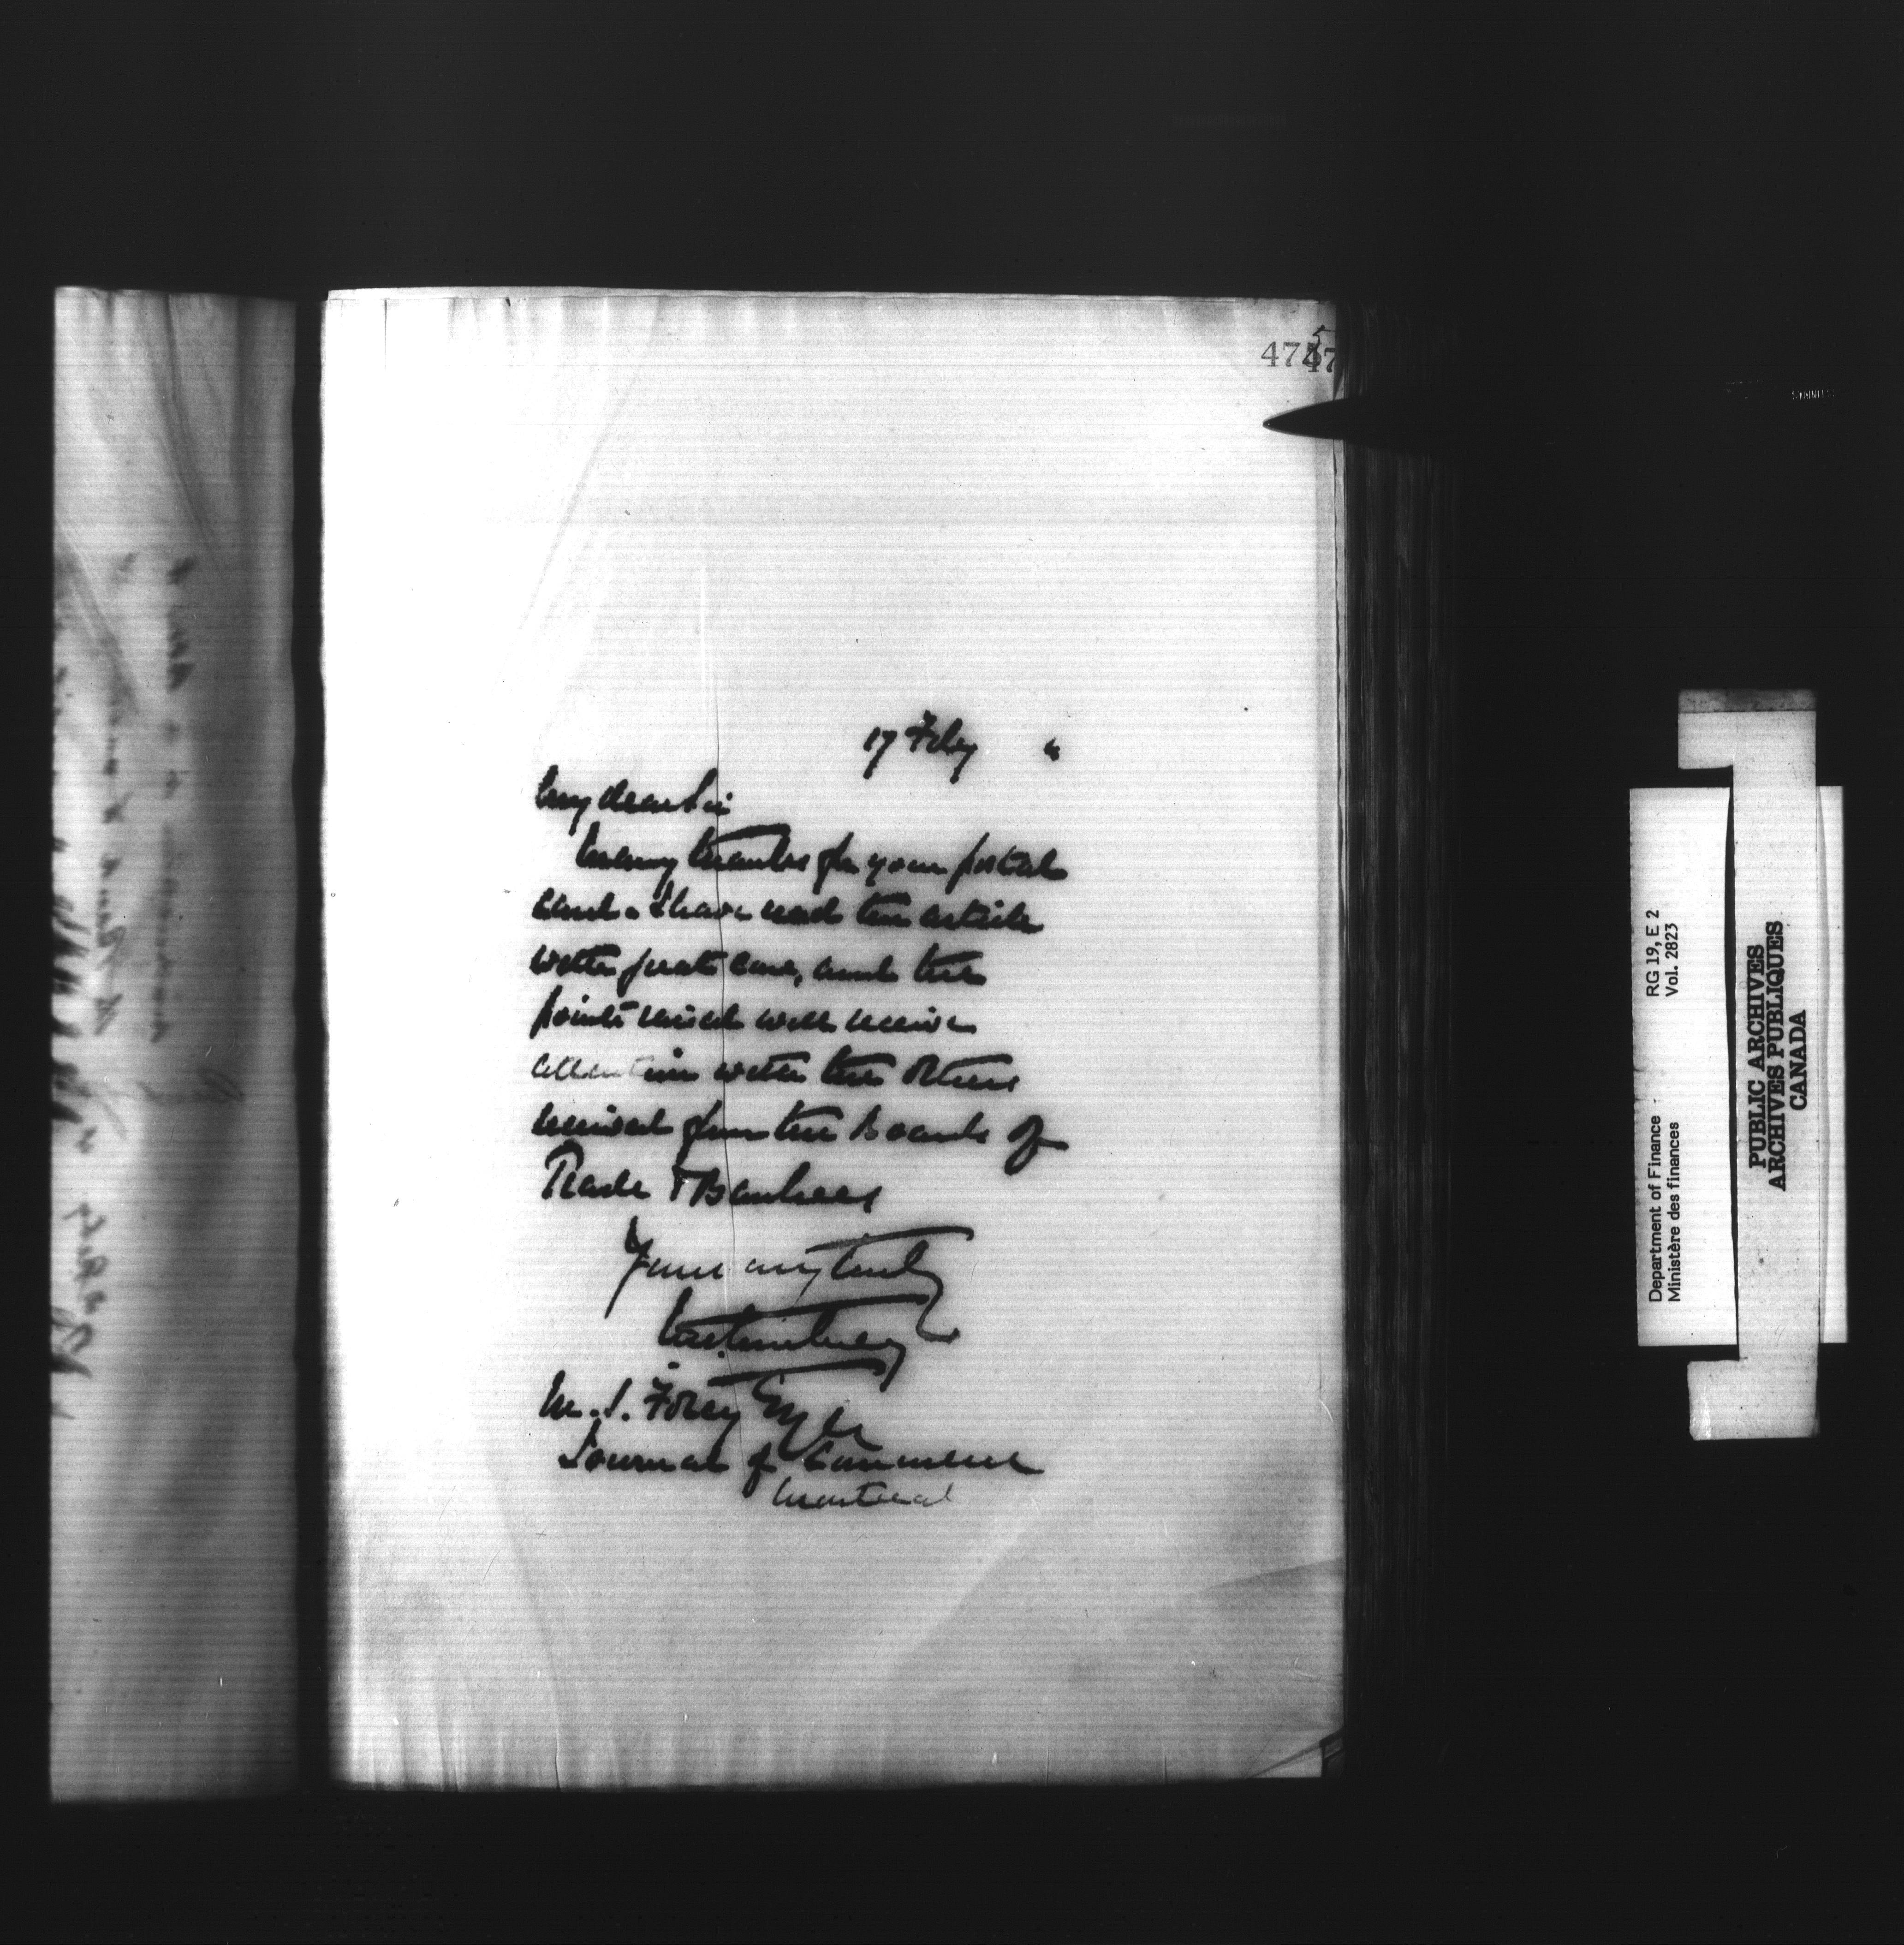 475
47
17 Feby "
My dear Sir
Many thanks for your postal
card. I have read the article
with great care, and the
points raised will receive
attention with the others
received from the Boards of
Trade & Bankers
Yours very truly
M. S. Foley Esq
Journal of Commerce
Montreal
Department of Finance RG 19, E 2
Ministère des finances Vol. 2823
PUBLIC ARCHIVES
ARCHIVES PUBLIQUES
CANADA